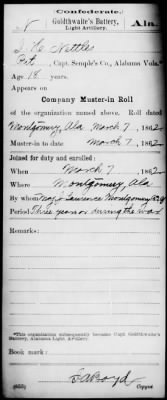 (Confederate.)
N Goldthwaite's Battery, Ala.
Light Artillery.
Nettles
Pvt., Capt. Semple's Co., Alabama Vols.*
Age 18 years.
Appears on
Company Muster-in Roll
of the organization named above. Roll dated
Montgomery, Ala March 7, 1862
Muster-in to date March 7, 1862
Joined for duty and enrolled:
When March 7, 1862
Where Montgomery, Ala
By whom Lawrence Montgomery
Period Three years or during the war
Remarks:
*This organization subsequently became Capt. Goldthwaite's Battery, Alabama Light Artillery.
Book mark:
Boyd
Copyist.